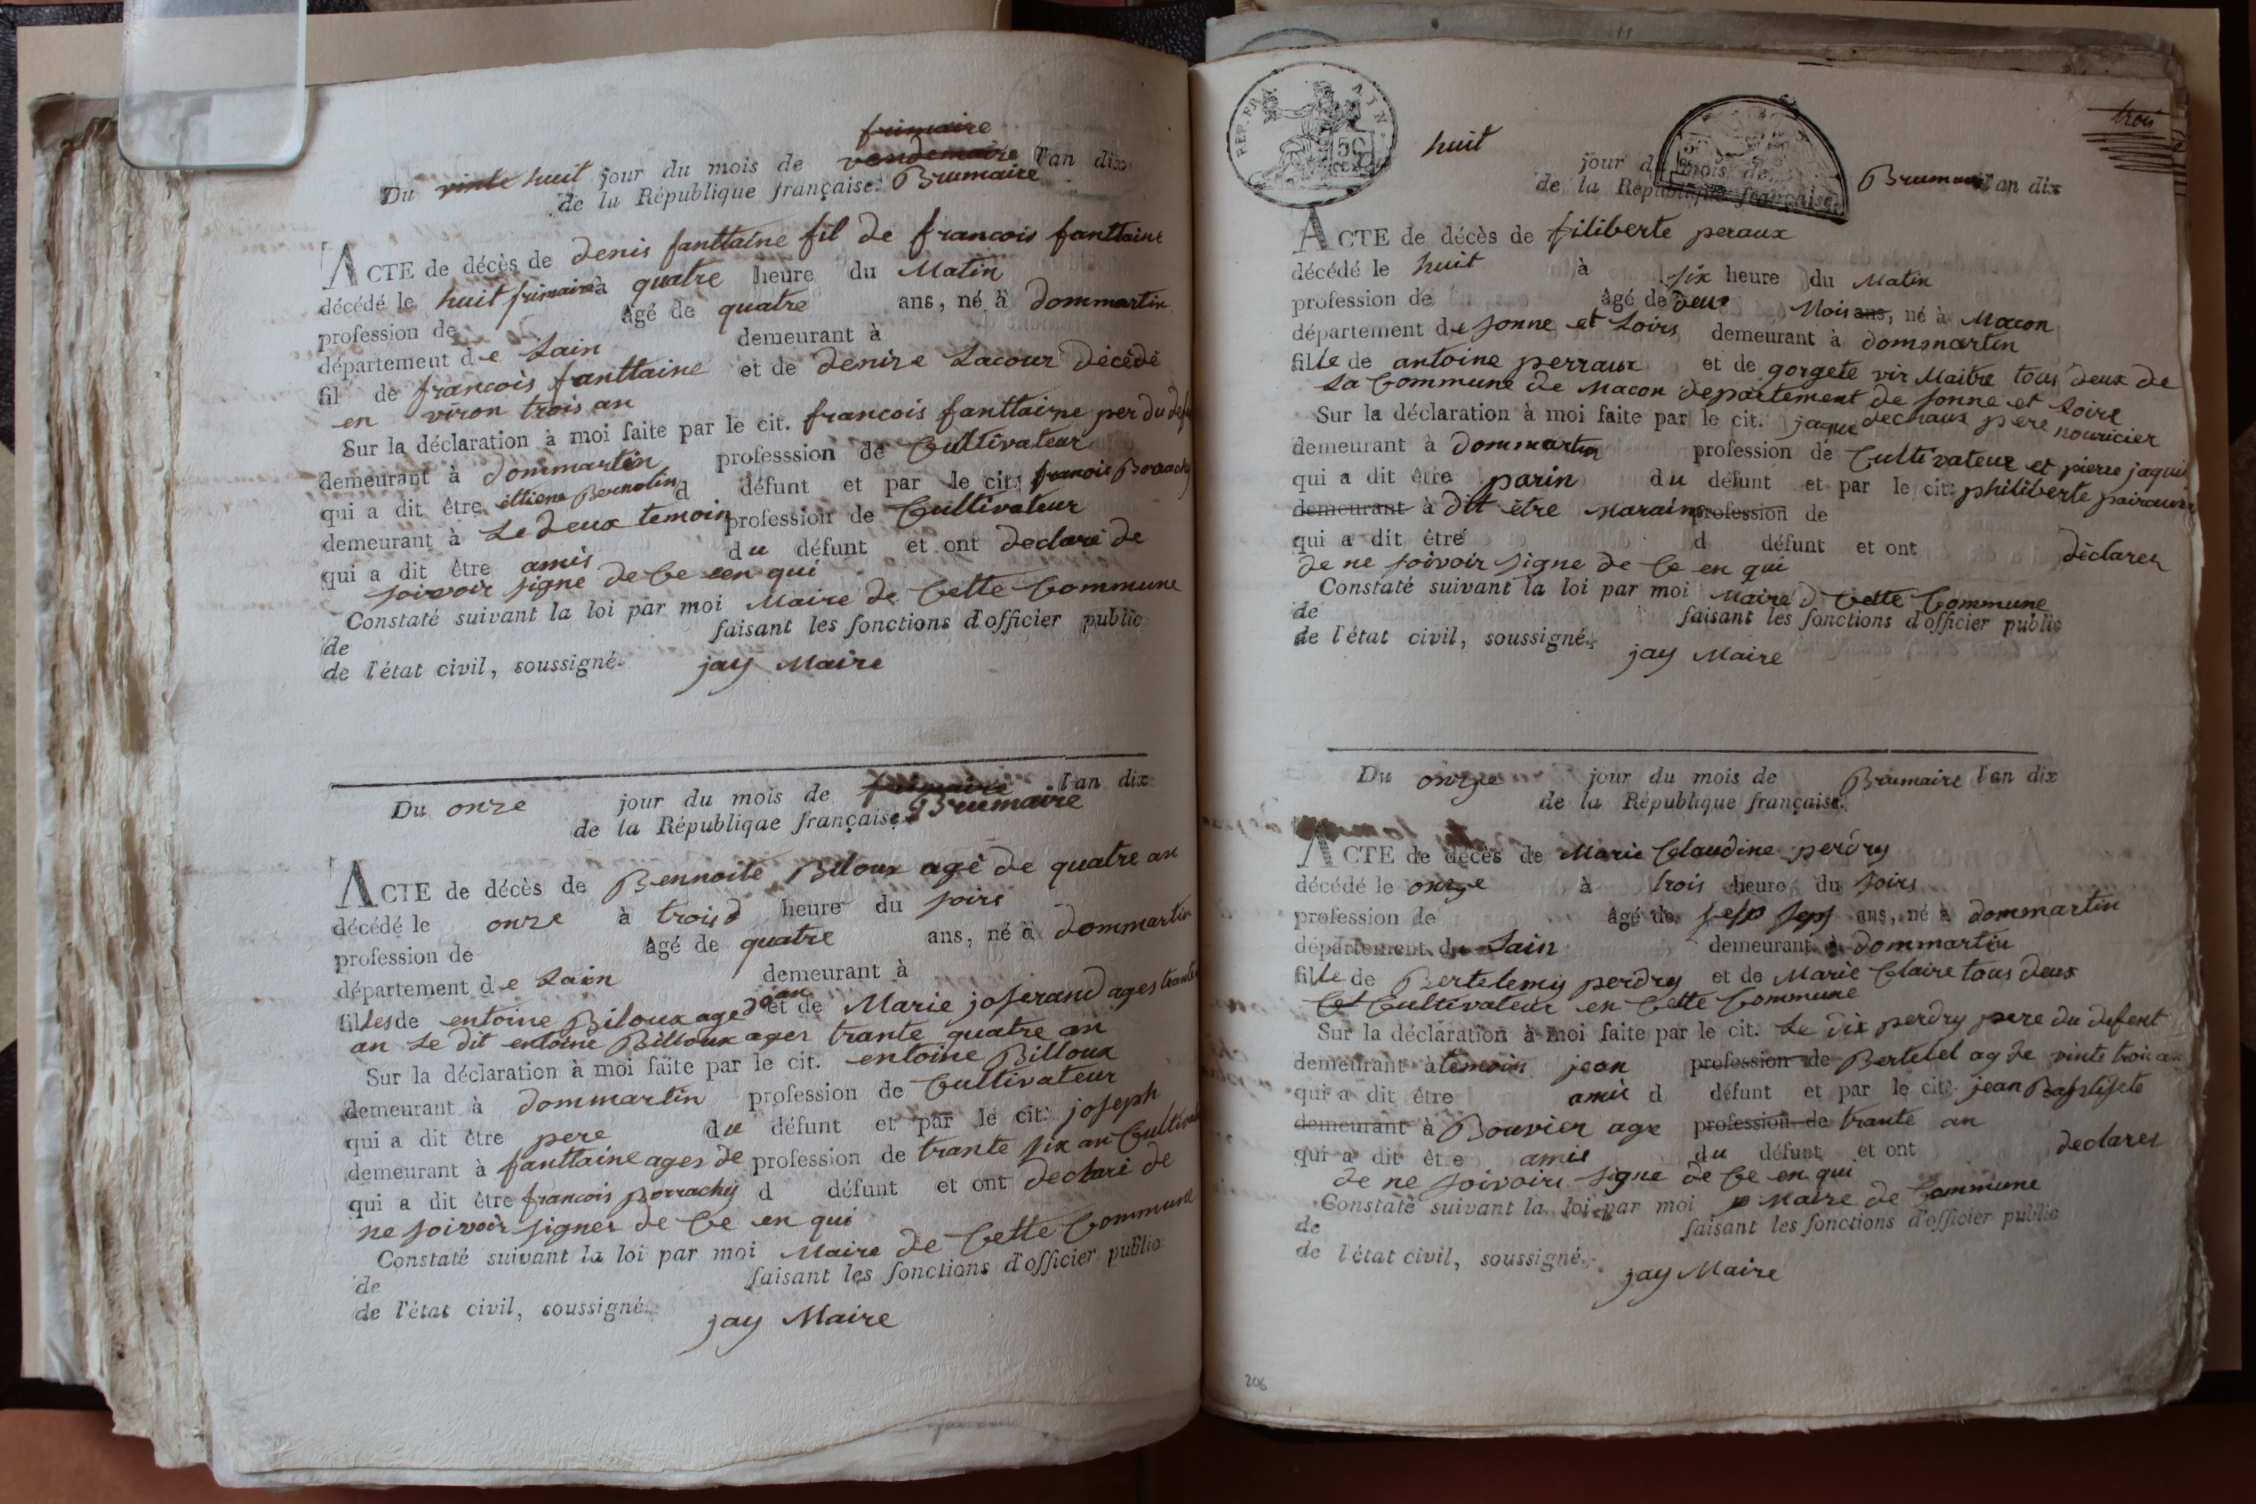 frimaire
Du vinte huit jour du mois de vendemaire l'an dix
de la République française. Brumaire
ACTE de décès de denis fanttaine fil de francois fanttaine
décédé le huit frimaire à quatre heure du Matin
profession de âgé de quatre ans, né à dommartin
département de Lain demeurant à
fil de francois fanttaine et de denize Lacour décédé
en viron trois an
Sur la déclaration à moi faite par le cit. francois fanttaine per du
demeurant à dommartin professsion de Cultivateur
qui a dit être ettiene Bernolin d défunt et par le cit. francois
demeurant à Le deux temoin profession de Cultivateur
qui a dit être amis du défunt et ont declaré de
soivoir signe de Ce en qui
Constaté suivant la loi par moi Maire de Cette Commune
de faisant les fonctions d'officier public
de l'état civil, soussigné.
jay Maire
Du onze jour du mois de frimaire l'an dix
de la République française. Brumaire
ACTE de décès de Bennoite Biloux agé de quatre an
décédé le onze à trois heure du soirs
profession de âgé de quatre ans, né à dommartin
département de Lain demeurant à
filles de entoine Biloux aged et de Marie joserand ages trante
an Le dit entoine Billoux ages trante quatre an
Sur la déclaration à moi faite par le cit. entoine Billoux
demeurant à dommartin profession de Cultivateur
qui a dit être pere du défunt et par le cit. joseph
demeurant à fanttaine ages de profession de trante six an
qui a dit être francois porrachy d défunt et ont declaré de
ne soivoir signer de Ce en qui
Constaté suivant la loi par moi Maire de Cette Commune
de faisant les fonctions d'officier public
de l'état civil, soussigné.
jay Maire
trois
REP. FRA. AIN.
huit jour du mois de Brumaire l'an dix
de la République française.
ACTE de décès de filiberte peraux
décédé le huit à six heure du Matin
profession de âgé de deux Mois ans, né à Macon
département de sonne et Loirs demeurant à dommartin
fille de antoine perraux et de gorgete vir Maitre tous deux de
La Commune de Macon departement de sonne et Loire
Sur la déclaration à moi faite par le cit. jaque dechaux pere nouricier
demeurant à dommartin profession de Cultivateur et pierre jaqui
qui a dit être parin du défunt et par le cit. philiberte pairaux
demeurant à dit être maraine profession de
qui a dit être d défunt et ont déclarer
de ne soivoir signe de Ce en qui
Constaté suivant la loi par moi Maire d Cette Commune
de faisant les fonctions d'officier public
de l'état civil, soussigné.
jay Maire
Du onze jour du mois de Brumaire l'an dix
de la République française.
ACTE de décès de Marie Claudine perdry
décédé le onze à trois heure du soirs
profession de âgé de ans, né à dommartin
département de Lain demeurant à dommartin
fille de Bertelemy perdry et de Marie Claire tous deux
Cultivateur en Cette Commune
Sur la déclaration à moi faite par le cit. Le dix perdry pere du defent
demeurant à temoin jean profession de Bertelet ag de vinte trois an
qui a dit être amis d défunt et par le cit. jean Baptiste
demeurant à Bouvier age profession de trante an
qui a dit être amis du défunt et ont declarer
de ne soivoire signe de Ce en qui
Constaté suivant la loi par moi Maire de Commune
de faisant les fonctions d'officier public
de l'état civil, soussigné.
jay Maire
206